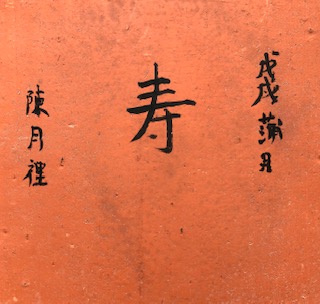 戊戌蒲月
寿
陳月裡